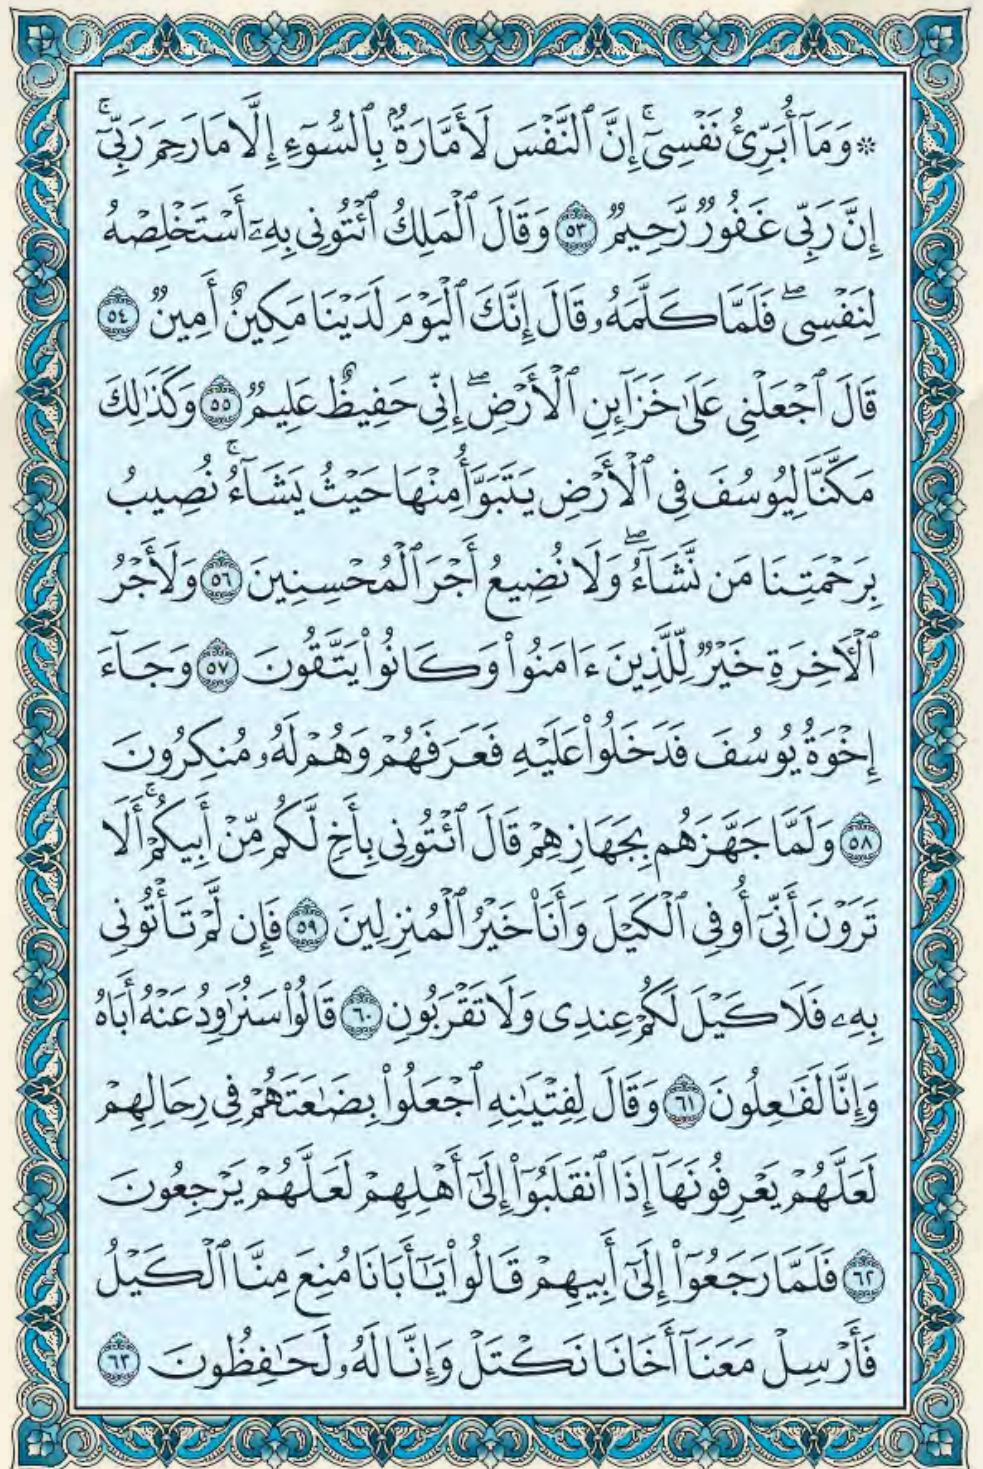 ۞ وَمَآ أُبَرِّئُ نَفۡسِيٓۚ إِنَّ ٱلنَّفۡسَ لَأَمَّارَةُۢ بِٱلسُّوٓءِ إِلَّا مَا رَحِمَ رَبِّيٓۚ
إِنَّ رَبِّي غَفُورٞ رَّحِيمٞ ٥٣ وَقَالَ ٱلۡمَلِكُ ٱئۡتُونِي بِهِۦٓ أَسۡتَخۡلِصۡهُ
لِنَفۡسِيۖ فَلَمَّا كَلَّمَهُۥ قَالَ إِنَّكَ ٱلۡيَوۡمَ لَدَيۡنَا مَكِينٌ أَمِينٞ ٥٤
قَالَ ٱجۡعَلۡنِي عَلَىٰ خَزَآئِنِ ٱلۡأَرۡضِۖ إِنِّي حَفِيظٌ عَلِيمٞ ٥٥ وَكَذَٰلِكَ
مَكَّنَّا لِيُوسُفَ فِي ٱلۡأَرۡضِ يَتَبَوَّأُ مِنۡهَا حَيۡثُ يَشَآءُۚ نُصِيبُ
بِرَحۡمَتِنَا مَن نَّشَآءُۖ وَلَا نُضِيعُ أَجۡرَ ٱلۡمُحۡسِنِينَ ٥٦ وَلَأَجۡرُ
ٱلۡأٓخِرَةِ خَيۡرٞ لِّلَّذِينَ ءَامَنُواْ وَكَانُواْ يَتَّقُونَ ٥٧ وَجَآءَ
إِخۡوَةُ يُوسُفَ فَدَخَلُواْ عَلَيۡهِ فَعَرَفَهُمۡ وَهُمۡ لَهُۥ مُنكِرُونَ
٥٨ وَلَمَّا جَهَّزَهُم بِجَهَازِهِمۡ قَالَ ٱئۡتُونِي بِأَخٖ لَّكُم مِّنۡ أَبِيكُمۡۚ أَلَا
تَرَوۡنَ أَنِّيٓ أُوفِي ٱلۡكَيۡلَ وَأَنَا۠ خَيۡرُ ٱلۡمُنزِلِينَ ٥٩ فَإِن لَّمۡ تَأۡتُونِي
بِهِۦ فَلَا كَيۡلَ لَكُمۡ عِندِي وَلَا تَقۡرَبُونِ ٦٠ قَالُواْ سَنُرَٰوِدُ عَنۡهُ أَبَاهُ
وَإِنَّا لَفَٰعِلُونَ ٦١ وَقَالَ لِفِتۡيَٰنِهِ ٱجۡعَلُواْ بِضَٰعَتَهُمۡ فِي رِحَالِهِمۡ
لَعَلَّهُمۡ يَعۡرِفُونَهَآ إِذَا ٱنقَلَبُوٓاْ إِلَىٰٓ أَهۡلِهِمۡ لَعَلَّهُمۡ يَرۡجِعُونَ
٦٢ فَلَمَّا رَجَعُوٓاْ إِلَىٰٓ أَبِيهِمۡ قَالُواْ يَٰٓأَبَانَا مُنِعَ مِنَّا ٱلۡكَيۡلُ
فَأَرۡسِلۡ مَعَنَآ أَخَانَا نَكۡتَلۡ وَإِنَّا لَهُۥ لَحَٰفِظُونَ ٦٣